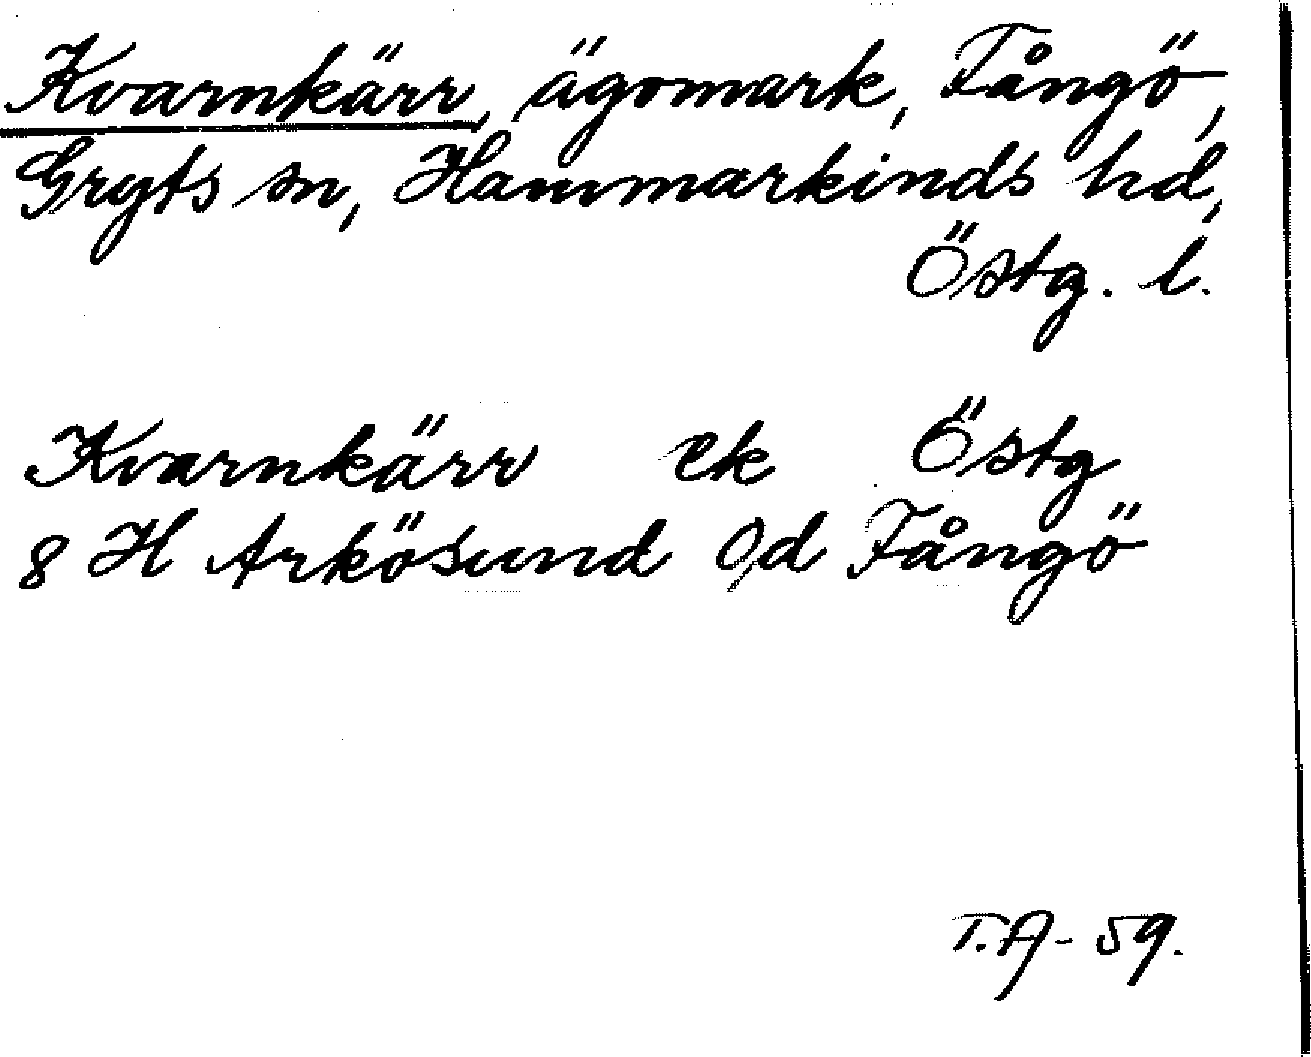 Kvarnkärr, ägomark, Fångö,
Gryts sn, Hammarkinds hd,
Östg. l.
Kvarnkärr ek Östg
8 H Arkösund Od Fångö
T.A- 59.